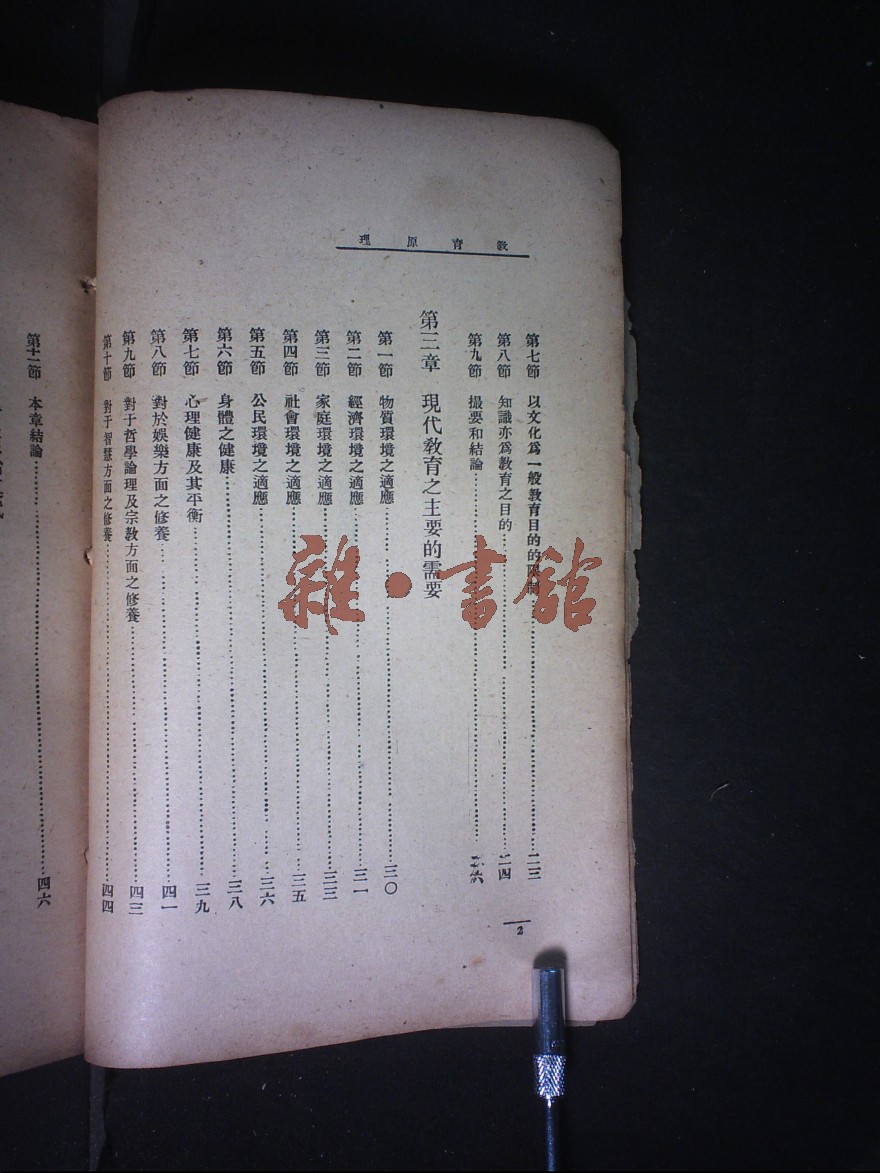 教育原理
第七節 以文化爲一般教育目的的限制……二三
第八節 知識亦爲教育之目的……二四
第九節 撮要和結論……
第三章 現代教育之主要的需要
第一節 物質環境之適應……三〇
第二節 經濟環境之適應……三一
第三節 家庭環境之適應……三三
第四節 社會環境之適應……三五
第五節 公民環境之適應……三六
第六節 身體之健康……三八
第七節 心理健康及其平衡……三九
第八節 對於娛樂方面之修養……四一
第九節 對于哲學論理及宗教方面之修養……四三
第十節 對于智慧方面之修養……四四
2
第十一節 本章結論……四六
雜·書館